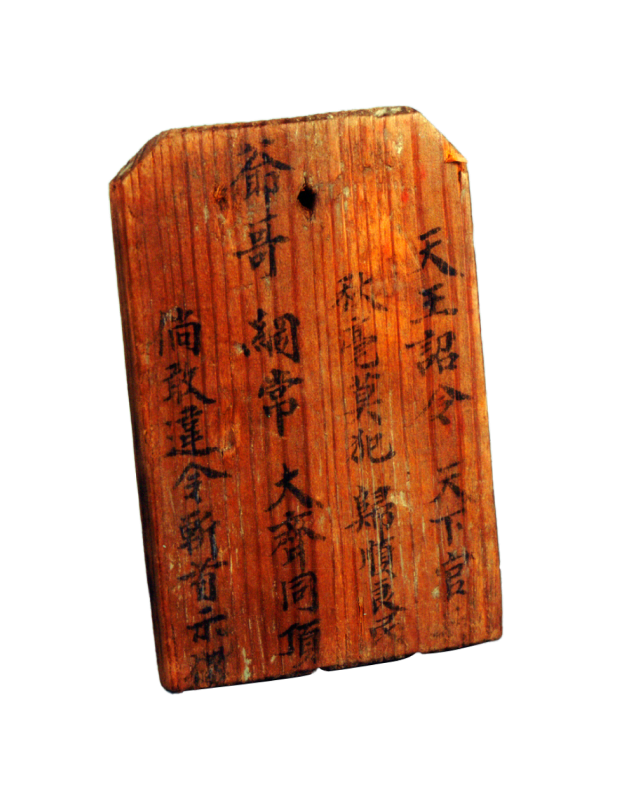 天王詔令 天下官
秋毫莫犯 歸順良民
爺哥 綱常 大齊同頂
倘敢違令斬首示